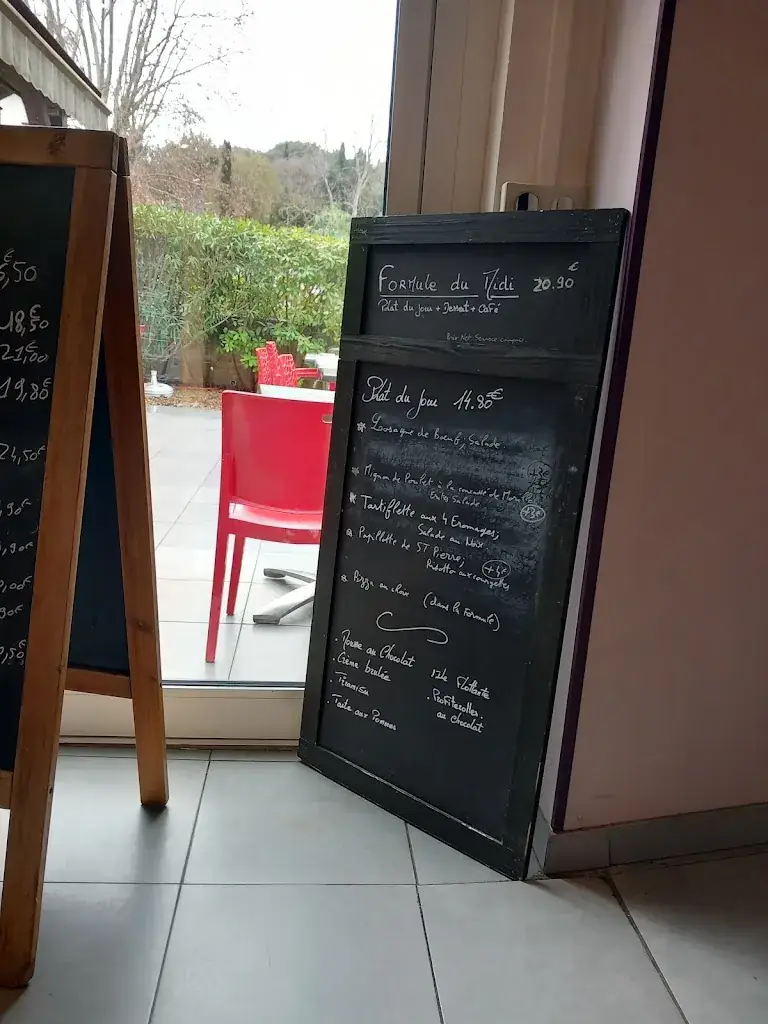 6,50€
18,50€
21,00€
19,80€
24,50€
,90€
,90€
,00€
90€
,50€
Formule du Midi 20.90€
Plat du jour + Dessert + Café
Prix Net Service compris
Plat du jour 14.80€
Lasagne de Boeuf, Salade
Mignon de Poulet à la
Salade
Tartiflette aux 4 Fromages,
Salade au Noix
Papillotte de ST Pierre,
Risotto aux courgettes +4€
Pizza au choix (dans la Formule)
. Mousse au Chocolat
. Crème brulée
. Tiramisu
. Tarte aux Pommes
Ile Flottante
. Profiterolles
au chocolat